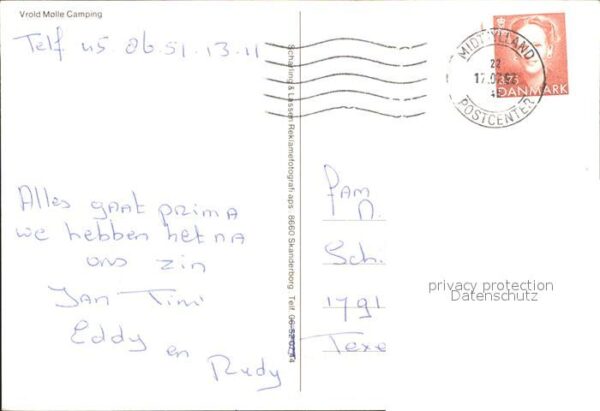 Vrold Mølle Camping
Telf 45. 86.51.13.11
MIDTJYLLAND
22
POSTCENTER
DANMARK
Scharling & Lassen Reklamefotografi aps 8660 Skanderborg Telf. 06-
Alles gaat prima
we hebben het na
ons zin
Jan Timi
Eddy en
Rudy
Fam
D.
Sch.
1791
Texe
privacy protection
Datenschutz